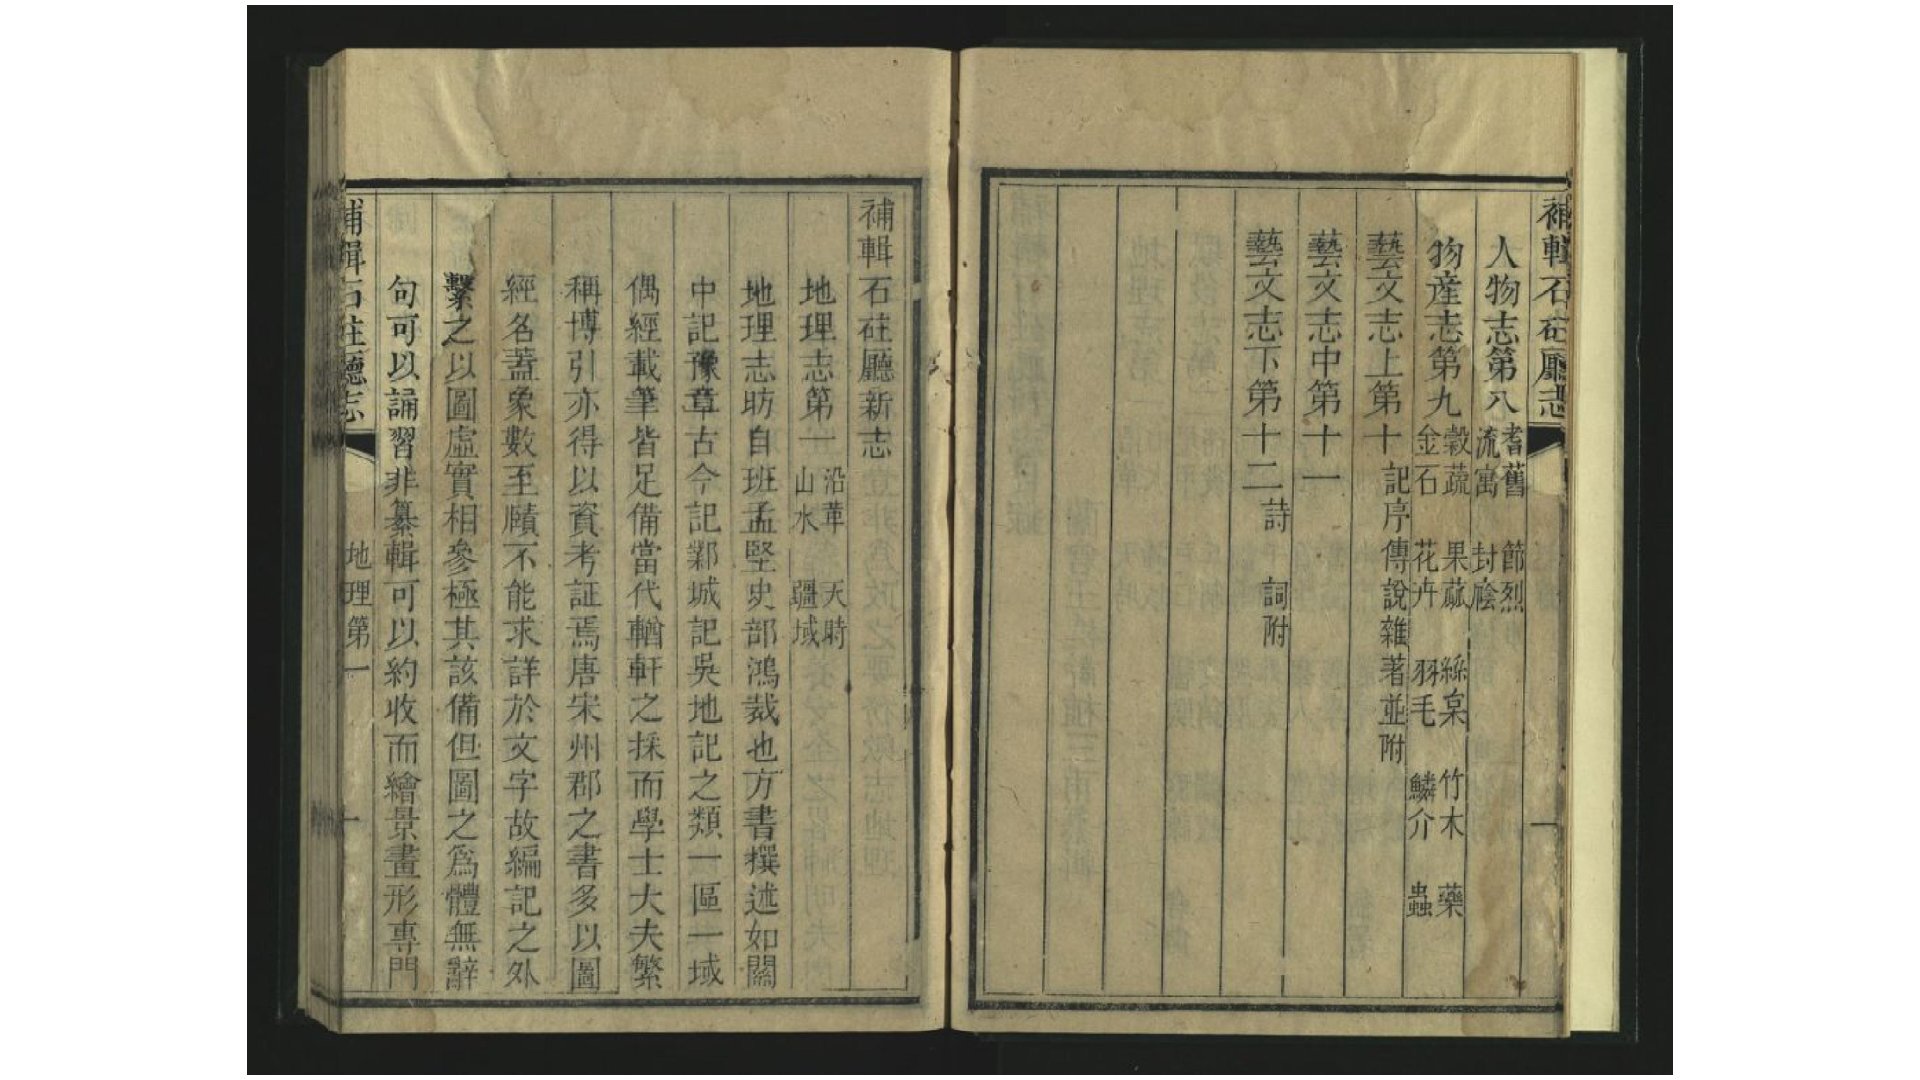 補輯石砫廳志 一
人物志第八 耆舊 節烈 流寓 封廕
物產志第九 穀蔬 果蓏 絲枲 竹木 藥 金石 花卉 羽毛 鱗介 蟲
藝文志上第十 記序傳說雜著並附
藝文志中第十一
藝文志下第十二 詩 詞附
補輯石砫廳新志
地理志第一 沿革 天時 山水 疆域
地理志昉自班孟堅史部鴻裁也方書撰述如關
中記豫章古今記鄴城記吳地記之類一區一域
偶經載筆皆足備當代輶軒之採而學士大夫繁
稱博引亦得以資考証焉唐宋州郡之書多以圖
經名蓋象數至賾不能求詳於文字故編記之外
繫之以圖虛實相參極其該備但圖之爲體無辭
句可以誦習非纂輯可以約收而繪景畫形專門
補輯石砫廳志 地理第一 一